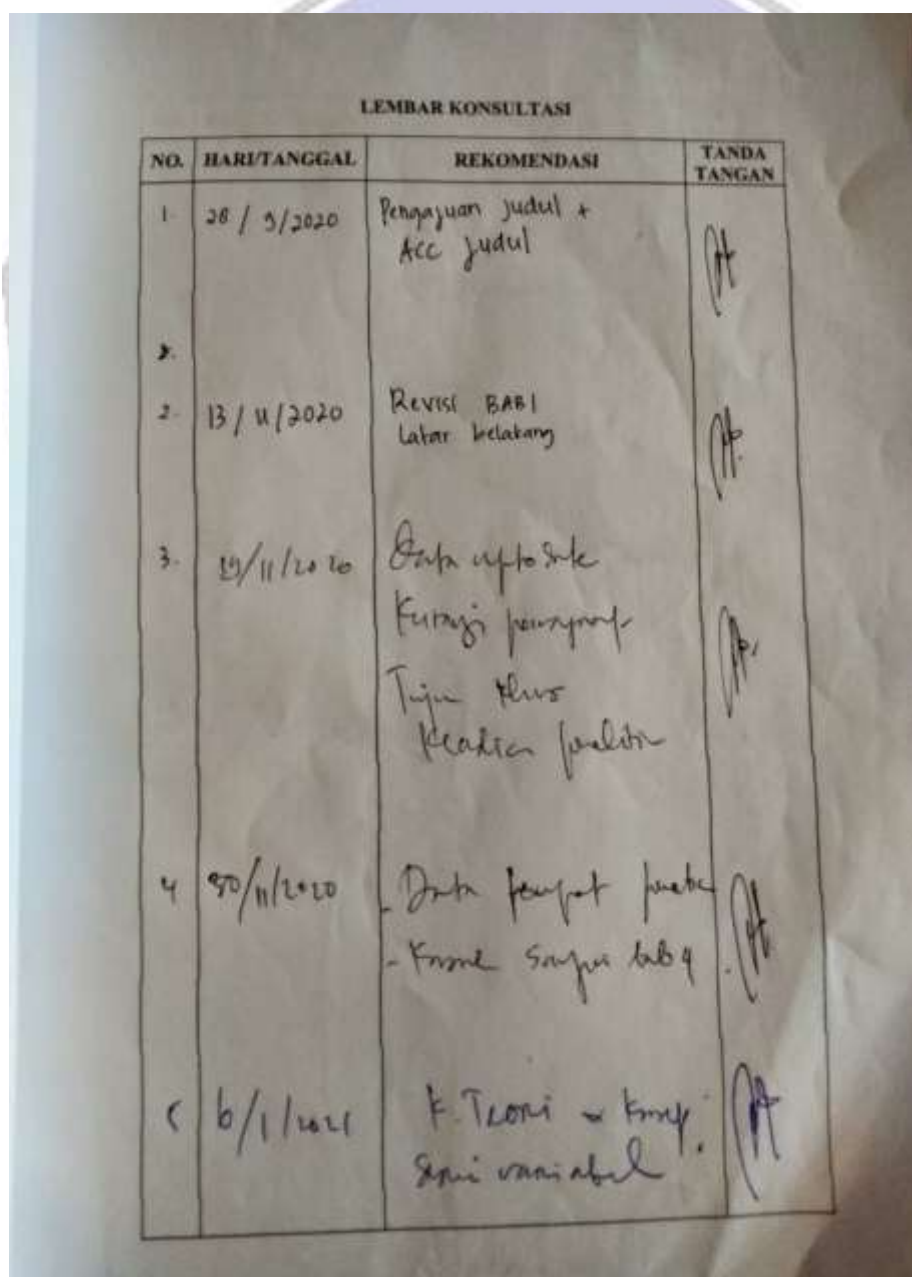 LEMBAR KONSULTASI
NO. HARI/TANGGAL REKOMENDASI TANDA TANGAN
1. 28 / 9/2020 Pengajuan judul +
ACC judul
2. 13 / 11/2020 Revisi BAB I
Latar belakang
3. 19/11/2020 Data uptodate
Kurangi paragraf
Tujuan khus
Keaslian penelitian
4 30/11/2020 - Data tempat
- Konsul sampai bab 4
5 6/1/2021 K. Teori Konsep
variabel